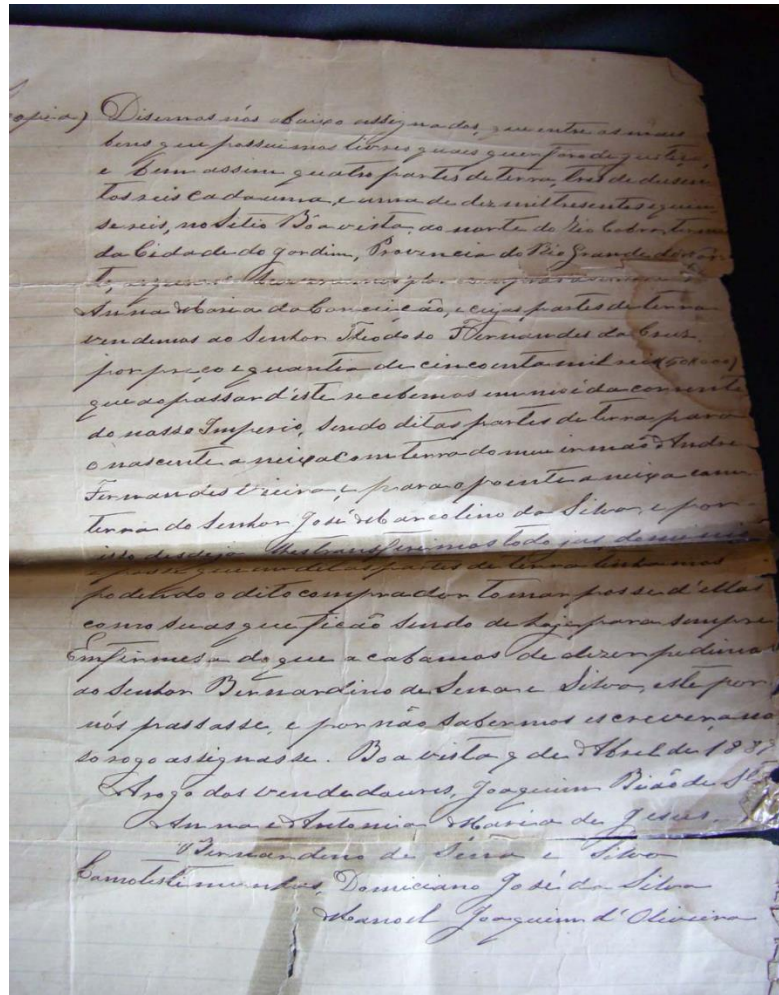 (Copia) Disemos nós abaixo assignados, que entre os mais
bens que possuimos livres quais quer
e bem assim quatro partes de terra, tres de dusen
tos reis cada uma, e uma de dez mil tresentos e quin
se reis, no Sitio Bôa vista, ao norte do Rio Cobra, termo
da Cidade do Jardim, Provencia do Rio Grande do Nor
te, por compras
Anna Maria da Conceição, e cujas partes de terra
vendemos ao Senhor Theodoso Fernandes da Cruz,
por preço e quantia de cincoenta mil reis (50#000)
que ao passar d'éste recebemos em muéda corrente
do nosso Imperio, sendo ditas partes de terra para
o nascente a neixa com terra do meu irmão Andre
Fernandes Vieira, e para o poente a neixa com
terra do Senhor José Marcolino da Silva, e por
isso desde já lhe transferimos todo jus, dominio
e posse que em ditas partes de terra tinhamos
podendo o dito comprador tomar posse d'ellas
como suas que ficão sendo de hoje para sempre
Emfirmesa do que acabamos de dizer pedimos
ao Senhor Bernardino de Sena e Silva, este por
nós passasse, e por não sabermos escrever, a no
so rogo assignasse. Boa vista 9 de Abrel de 188
Arogo dos vendedoures, Joaquim Bião de Sta
Anna e Antonia Maria de Jesus.
Bernardino de Sena e Silva
Comotestimunhas, Domiciano José da Silva
Manoel Joaquim d'Oliveira